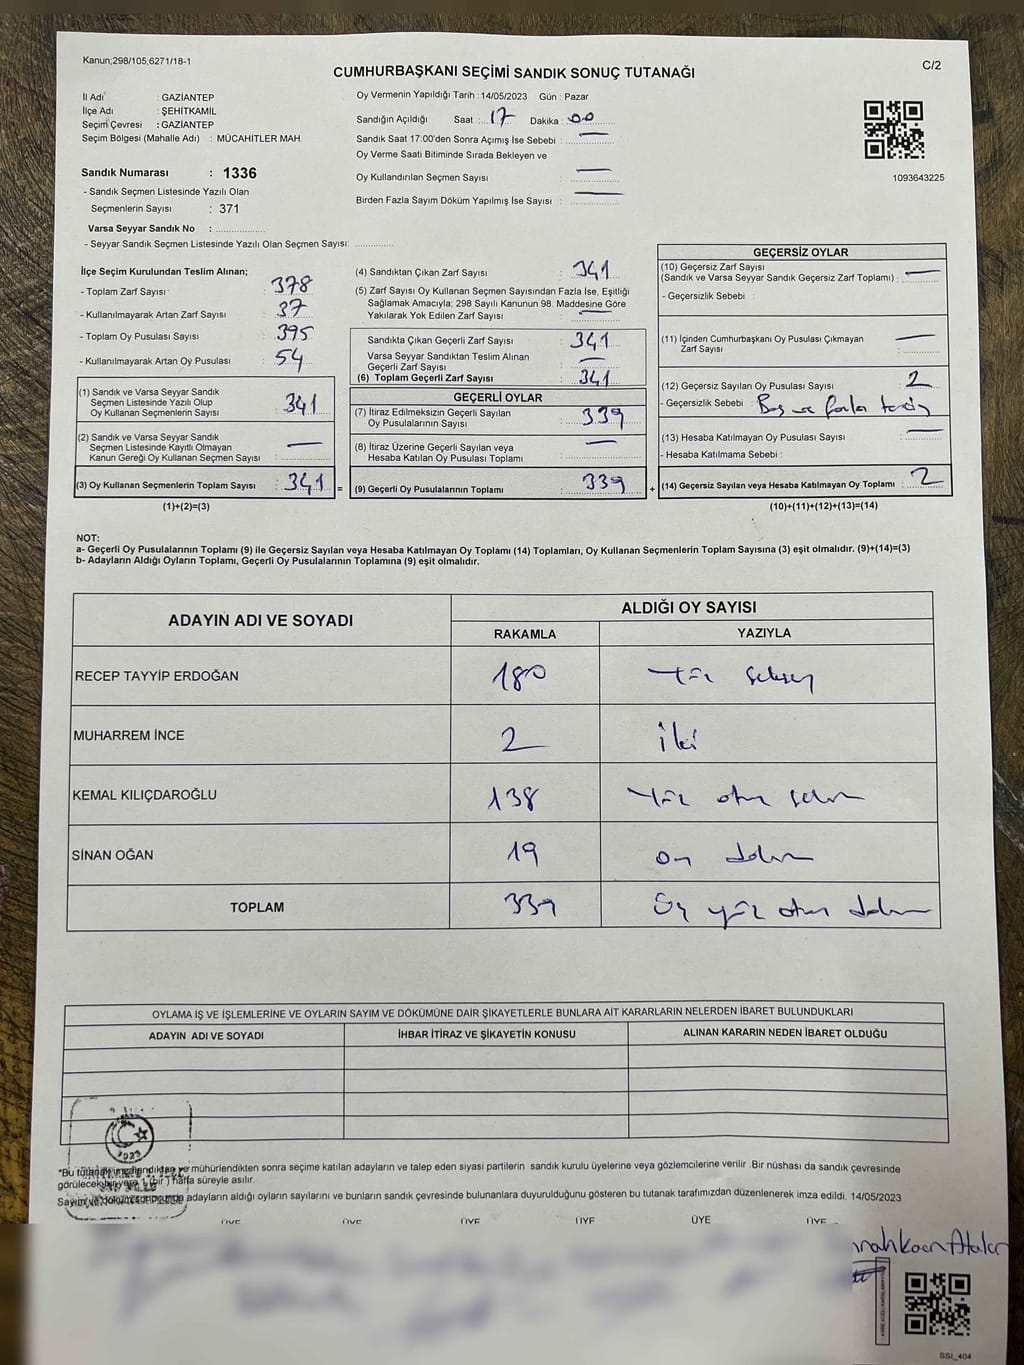 Kanun;298/105,6271/18-1
C/2
CUMHURBAŞKANI SEÇİMİ SANDIK SONUÇ TUTANAĞI
İl Adı : GAZİANTEP
İlçe Adı : ŞEHİTKAMİL
Seçim Çevresi : GAZİANTEP
Seçim Bölgesi (Mahalle Adı) : MÜCAHİTLER MAH.
Sandık Numarası : 1336
- Sandık Seçmen Listesinde Yazılı Olan
Seçmenlerin Sayısı : 371
Varsa Seyyar Sandık No :
- Seyyar Sandık Seçmen Listesinde Yazılı Olan Seçmen Sayısı:
Oy Vermenin Yapıldığı Tarih : 14/05/2023 Gün : Pazar
Sandığın Açıldığı Saat : 17 Dakika : 00
Sandık Saat 17:00'den Sonra Açımış İse Sebebi : —
Oy Verme Saati Bitiminde Sırada Bekleyen ve
Oy Kullandırılan Seçmen Sayısı : —
Birden Fazla Sayım Döküm Yapılmış İse Sayısı : —
1093643225
İlçe Seçim Kurulundan Teslim Alınan;
- Toplam Zarf Sayısı : 378
- Kullanılmayarak Artan Zarf Sayısı : 37
- Toplam Oy Pusulası Sayısı : 395
- Kullanılmayarak Artan Oy Pusulası : 54
(1) Sandık ve Varsa Seyyar Sandık
Seçmen Listesinde Yazılı Olup
Oy Kullanan Seçmenlerin Sayısı : 341
(2) Sandık ve Varsa Seyyar Sandık
Seçmen Listesinde Kayıtlı Olmayan
Kanun Gereği Oy Kullanan Seçmen Sayısı : —
(3) Oy Kullanan Seçmenlerin Toplam Sayısı : 341
(1)+(2)=(3)
(4) Sandıktan Çıkan Zarf Sayısı : 341
(5) Zarf Sayısı Oy Kullanan Seçmen Sayısından Fazla İse, Eşitliği
Sağlamak Amacıyla; 298 Sayılı Kanunun 98. Maddesine Göre
Yakılarak Yok Edilen Zarf Sayısı : —
Sandıkta Çıkan Geçerli Zarf Sayısı : 341
Varsa Seyyar Sandıktan Teslim Alınan
Geçerli Zarf Sayısı : —
(6) Toplam Geçerli Zarf Sayısı : 341
GEÇERLİ OYLAR
(7) İtiraz Edilmeksizin Geçerli Sayılan
Oy Pusulalarının Sayısı : 339
(8) İtiraz Üzerine Geçerli Sayılan veya
Hesaba Katılan Oy Pusulası Toplamı : —
= (9) Geçerli Oy Pusulalarının Toplamı : 339
GEÇERSİZ OYLAR
(10) Geçersiz Zarf Sayısı
(Sandık ve Varsa Seyyar Sandık Geçersiz Zarf Toplamı) : —
- Geçersizlik Sebebi :
(11) İçinden Cumhurbaşkanı Oy Pusulası Çıkmayan
Zarf Sayısı : —
(12) Geçersiz Sayılan Oy Pusulası Sayısı : 2
- Geçersizlik Sebebi : Boş ve fazla
(13) Hesaba Katılmayan Oy Pusulası Sayısı : —
- Hesaba Katılmama Sebebi :
+ (14) Geçersiz Sayılan veya Hesaba Katılmayan Oy Toplamı : 2
(10)+(11)+(12)+(13)=(14)
NOT:
a- Geçerli Oy Pusulalarının Toplamı (9) ile Geçersiz Sayılan veya Hesaba Katılmayan Oy Toplamı (14) Toplamları, Oy Kullanan Seçmenlerin Toplam Sayısına (3) eşit olmalıdır. (9)+(14)=(3)
b- Adayların Aldığı Oyların Toplamı, Geçerli Oy Pusulalarının Toplamına (9) eşit olmalıdır.
ADAYIN ADI VE SOYADI
ALDIĞI OY SAYISI
RAKAMLA YAZIYLA
RECEP TAYYİP ERDOĞAN 180 Yüz seksen
MUHARREM İNCE 2 iki
KEMAL KILIÇDAROĞLU 138 Yüz otuz sekiz
SİNAN OĞAN 19 on dokuz
TOPLAM 339 Üç yüz otuz dokuz
OYLAMA İŞ VE İŞLEMLERİNE VE OYLARIN SAYIM VE DÖKÜMÜNE DAİR ŞİKAYETLERLE BUNLARA AİT KARARLARIN NELERDEN İBARET BULUNDUKLARI
ADAYIN ADI VE SOYADI İHBAR İTİRAZ VE ŞİKAYETİN KONUSU ALINAN KARARIN NEDEN İBARET OLDUĞU
2023
*Bu tutanak imzalandıktan ve mühürlendikten sonra seçime katılan adayların ve talep eden siyasi partilerin sandık kurulu üyelerine veya gözlemcilerine verilir .Bir nüshası da sandık çevresinde
görülecek bir yere 1 (bir ) hafta süreyle asılır.
Sayım ve döküm sonucunda adayların aldığı oyların sayılarını ve bunların sandık çevresinde bulunanlara duyurulduğunu gösteren bu tutanak tarafımızdan düzenlenerek imza edildi. 14/05/2023
ÜYE ÜYE ÜYE ÜYE ÜYE ÜYE
SSI_404